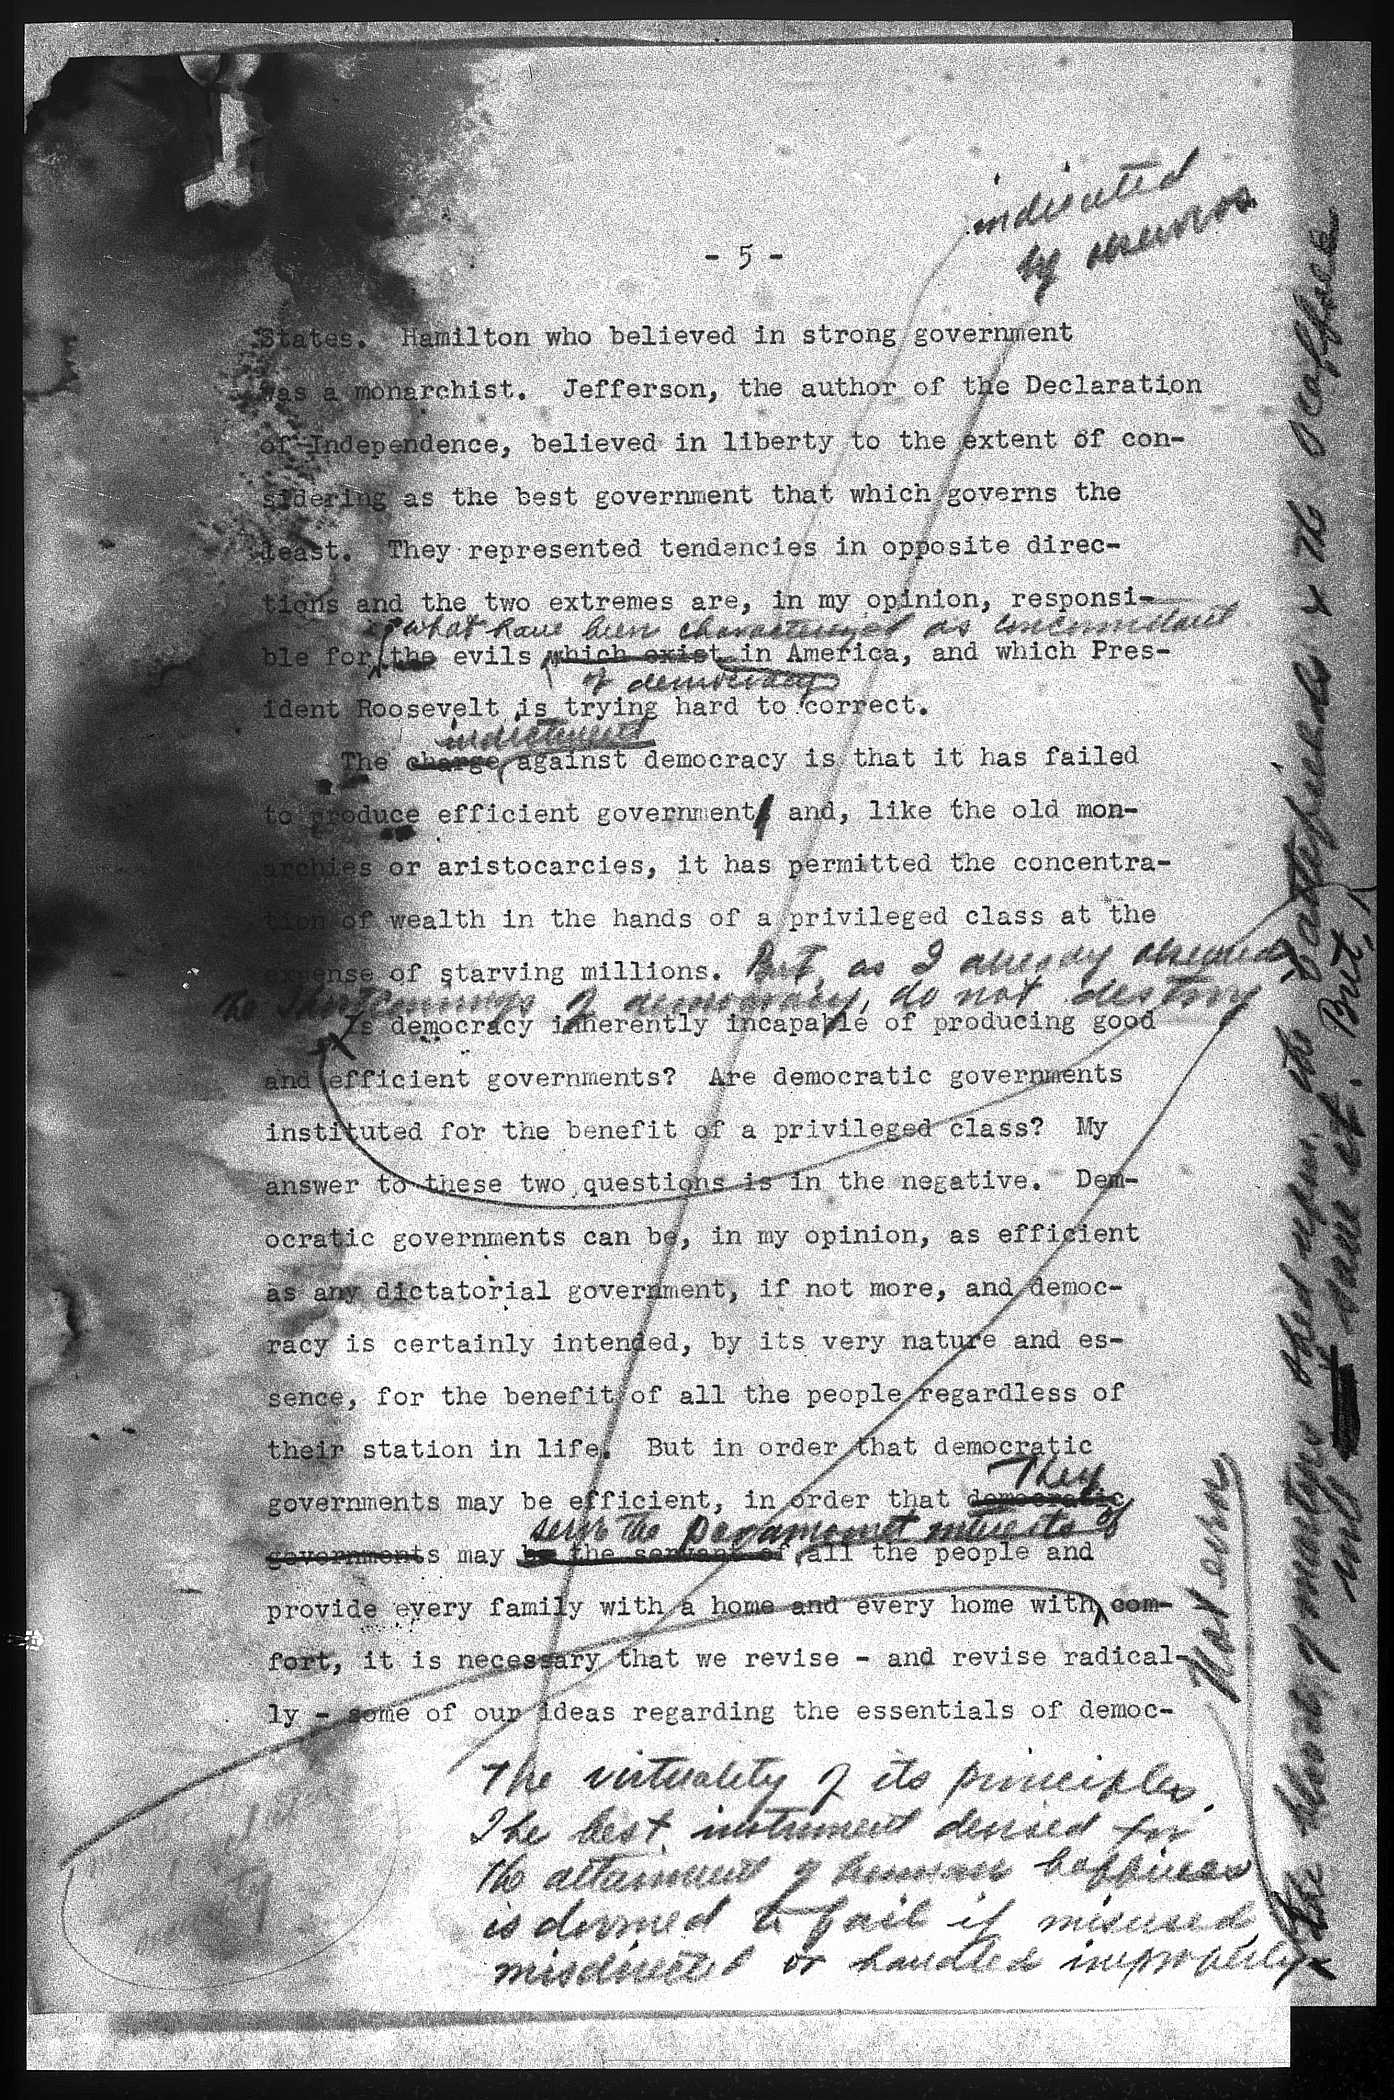 indicated
by
- 5 -
States. Hamilton who believed in strong government
was a monarchist. Jefferson, the author of the Declaration
of Independence, believed in liberty to the extent of con-
sidering as the best government that which governs the
least. They represented tendencies in opposite direc-
tions and the two extremes are, in my opinion, responsi-
what have been characterized as concomitant
ble for the evils which exist in America, and which Pres-
of democracy
ident Roosevelt is trying hard to correct.
indictment
The charge against democracy is that it has failed
to produce efficient government, and, like the old mon-
archies or aristocarcies, it has permitted the concentra-
tion of wealth in the hands of a privileged class at the
expense of starving millions. But, as I already observed
the shortcomings of democracy, do not destroy
Is democracy inherently incapable of producing good
and efficient governments? Are democratic governments
instituted for the benefit of a privileged class? My
answer to these two questions is in the negative. Dem-
ocratic governments can be, in my opinion, as efficient
as any dictatorial government, if not more, and democ-
racy is certainly intended, by its very nature and es-
sence, for the benefit of all the people regardless of
their station in life. But in order that democratic
They
governments may be efficient, in order that democratic
serve the paramount interests of
governments may be the servant of all the people and
provide every family with a home and every home with com-
fort, it is necessary that we revise - and revise radical-
ly - some of our ideas regarding the essentials of democ-
The virtuality of its principles.
The best instrument devised for
the attainment of human happiness
is doomed to fail if misused
misdirected or handled improperly.
Not even
the blood of martyrs shed upon the battlefields & the scaffold
will save it. But,